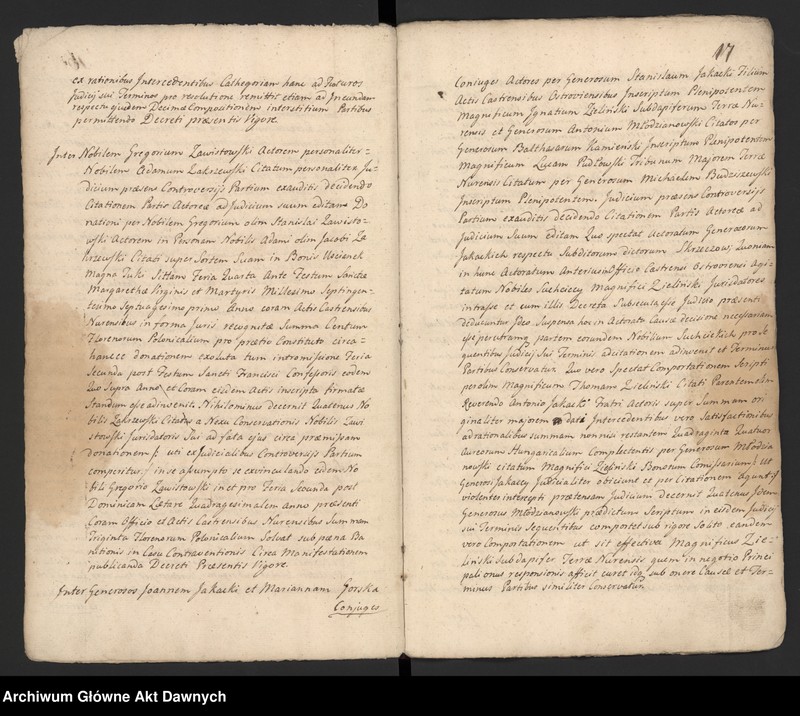 ex rationibus Intercedentibus Cathegoriam hanc ad Futuros
Judicij sui Terminos pro resolutione remittit etiam ad Ineundam
respectu ejusdem Decimæ Compositionem interstitium Partibus
permittendo Decreti præsentis Vigore.
Inter Nobilem Gregorium Zawistowski Actorem personaliter
Nobilem Adamum Zakrzewski Citatum personaliter Ju-
dicium præsens Controversijs Partium exauditis decidendo
Citationem Partis Actoreæ ad Judicium suum editam Do
nationi per Nobilem Gregorium olim Stanislai Zawisto-
wski Actorem in Personam Nobilis Adami olim Jacobi Za
krzewski Citati super Sortem Suam in Bonis
Magna Sittam Feria Quarta Ante Festum Sanctæ
Margarethæ Virginis et Martyris Millesimo Septingen-
tesimo Septuagesimo primo Anno coram Actis Castrensibus
Nurensibus in forma Juris recognitæ Summa Centum
Florenorum Polonicalium pro prætio Constituto circa
hancce donationem exoluta tum intromissione Feria
Secunda post Festum Sancti Francisci Confessoris eodem
Quo Supra Anno et Coram eisdem Actis inscripta firmatæ
Standum esse adinvenit. Nihilominus decernit Quatenus No
bilis Zakrzewski Citatus a Nexu Conservationis Nobilis Zawi
stowski Juridatoris Sui ad fata ejus circa præmissam
donationem uti ex Judicialibus Controversijs Partium
comperitur in se assumpto se exvinculando eidem No
bili Gregorio Zawistowski in et pro Feria Secunda post
Dominicam Lætare Quadragesimalem Anno præsenti
Coram Officio et Actis Castrensibus Nurensibus Summam
Triginta Florenorum Polonicalium Solvat sub pæna Ba
nitionis in Casu Contraventionis Circa Manifestationem
publicanda Decreti Præsentis Vigore.
Inter Generosos Joannem Jakacki et Mariannam Gorska
Conjuges
17
Conjuges Actores per Generosum Stanislaum Jakacki Filium
Actis Castrensibus Ostroviensibus Inscriptum Plenipotentem
Magnificum Ignatium Zieliński Subdapiferum Terræ Nu-
rensis et Generosum Antonium Młodzianowski Citatos per
Generosum Balthasarum Kamienski Inscriptum Plenipotentem
Magnificum Lucam Pudłowski Tribunum Majorem Terræ
Nurensis Citatum per Generosum Michaelem Budziszewski
Inscriptum Plenipotentem. Judicium præsens Controversijs
Partium exauditis decidendo Citationem Partis Actoreæ ad
Judicium Suum editam Quo spectat Actoratum Generosorum
Jakackich respectu Subditorum dictorum Skrzeczow, Quoniam
in hunc Actoratum Anterius Officio Castrensi Ostroviensi Agi-
tatum Nobiles Suchciccy Magnifici Zieliński Juridatores
intrasse et cum illis Decreta Subsecuta esse Judicio præsenti
deducuntur Ideo Suspensa hoc in Actoratu Causæ decisione necessariam
esse per utramq partem eorundem Nobilium Suchcickich pro Se
quentibus Judicij Sui Terminis Adcitationem adinvenit et Terminum
Partibus Conservatur. Quo vero Spectat Comportationem Scripti
per olim Magnificum Thomam Zieliński Citati Parentem olim
Reverendo Antonio Jakacki Fratri Actoris super Summam ori
ginaliter majorem dati Intercedentibus vero Satisfactionibus
ad rationalibus summam nonnisi restantem Quadraginta Quatuor
Aureorum Hungaricalium Complectentis per Generosum Młodzia
nowski citatum Magnifici Zieliński Bonorum Comissarium Ut
Generosi Jakaccy Judicialiter obijciunt et per Citationem agunt
violenter intercepti prætensam Judicium decernit Quatenus Idem
Generosus Młodzianowski prædictum Scriptum in eisdem Judicij
sui Terminis Sequentibus comportet sub rigore Solito eandem
vero Comportationem ut sit effectiva Magnificus Zie-
liński Subdapifer Terræ Nurensis quem in negotio Princi
pali onus responsionis afficit curet idq sub onere Causæ et Ter-
minus Partibus similiter Conservatur
Archiwum Główne Akt Dawnych